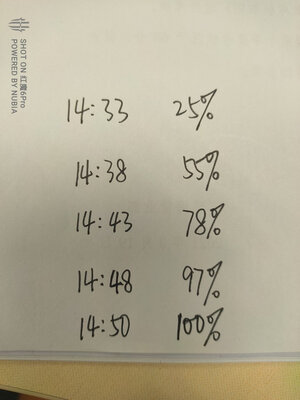 SHOT ON 红魔6Pro
POWERED BY NUBIA
14:33 25%
14:38 55%
14:43 78%
14:48 97%
14:50 100%